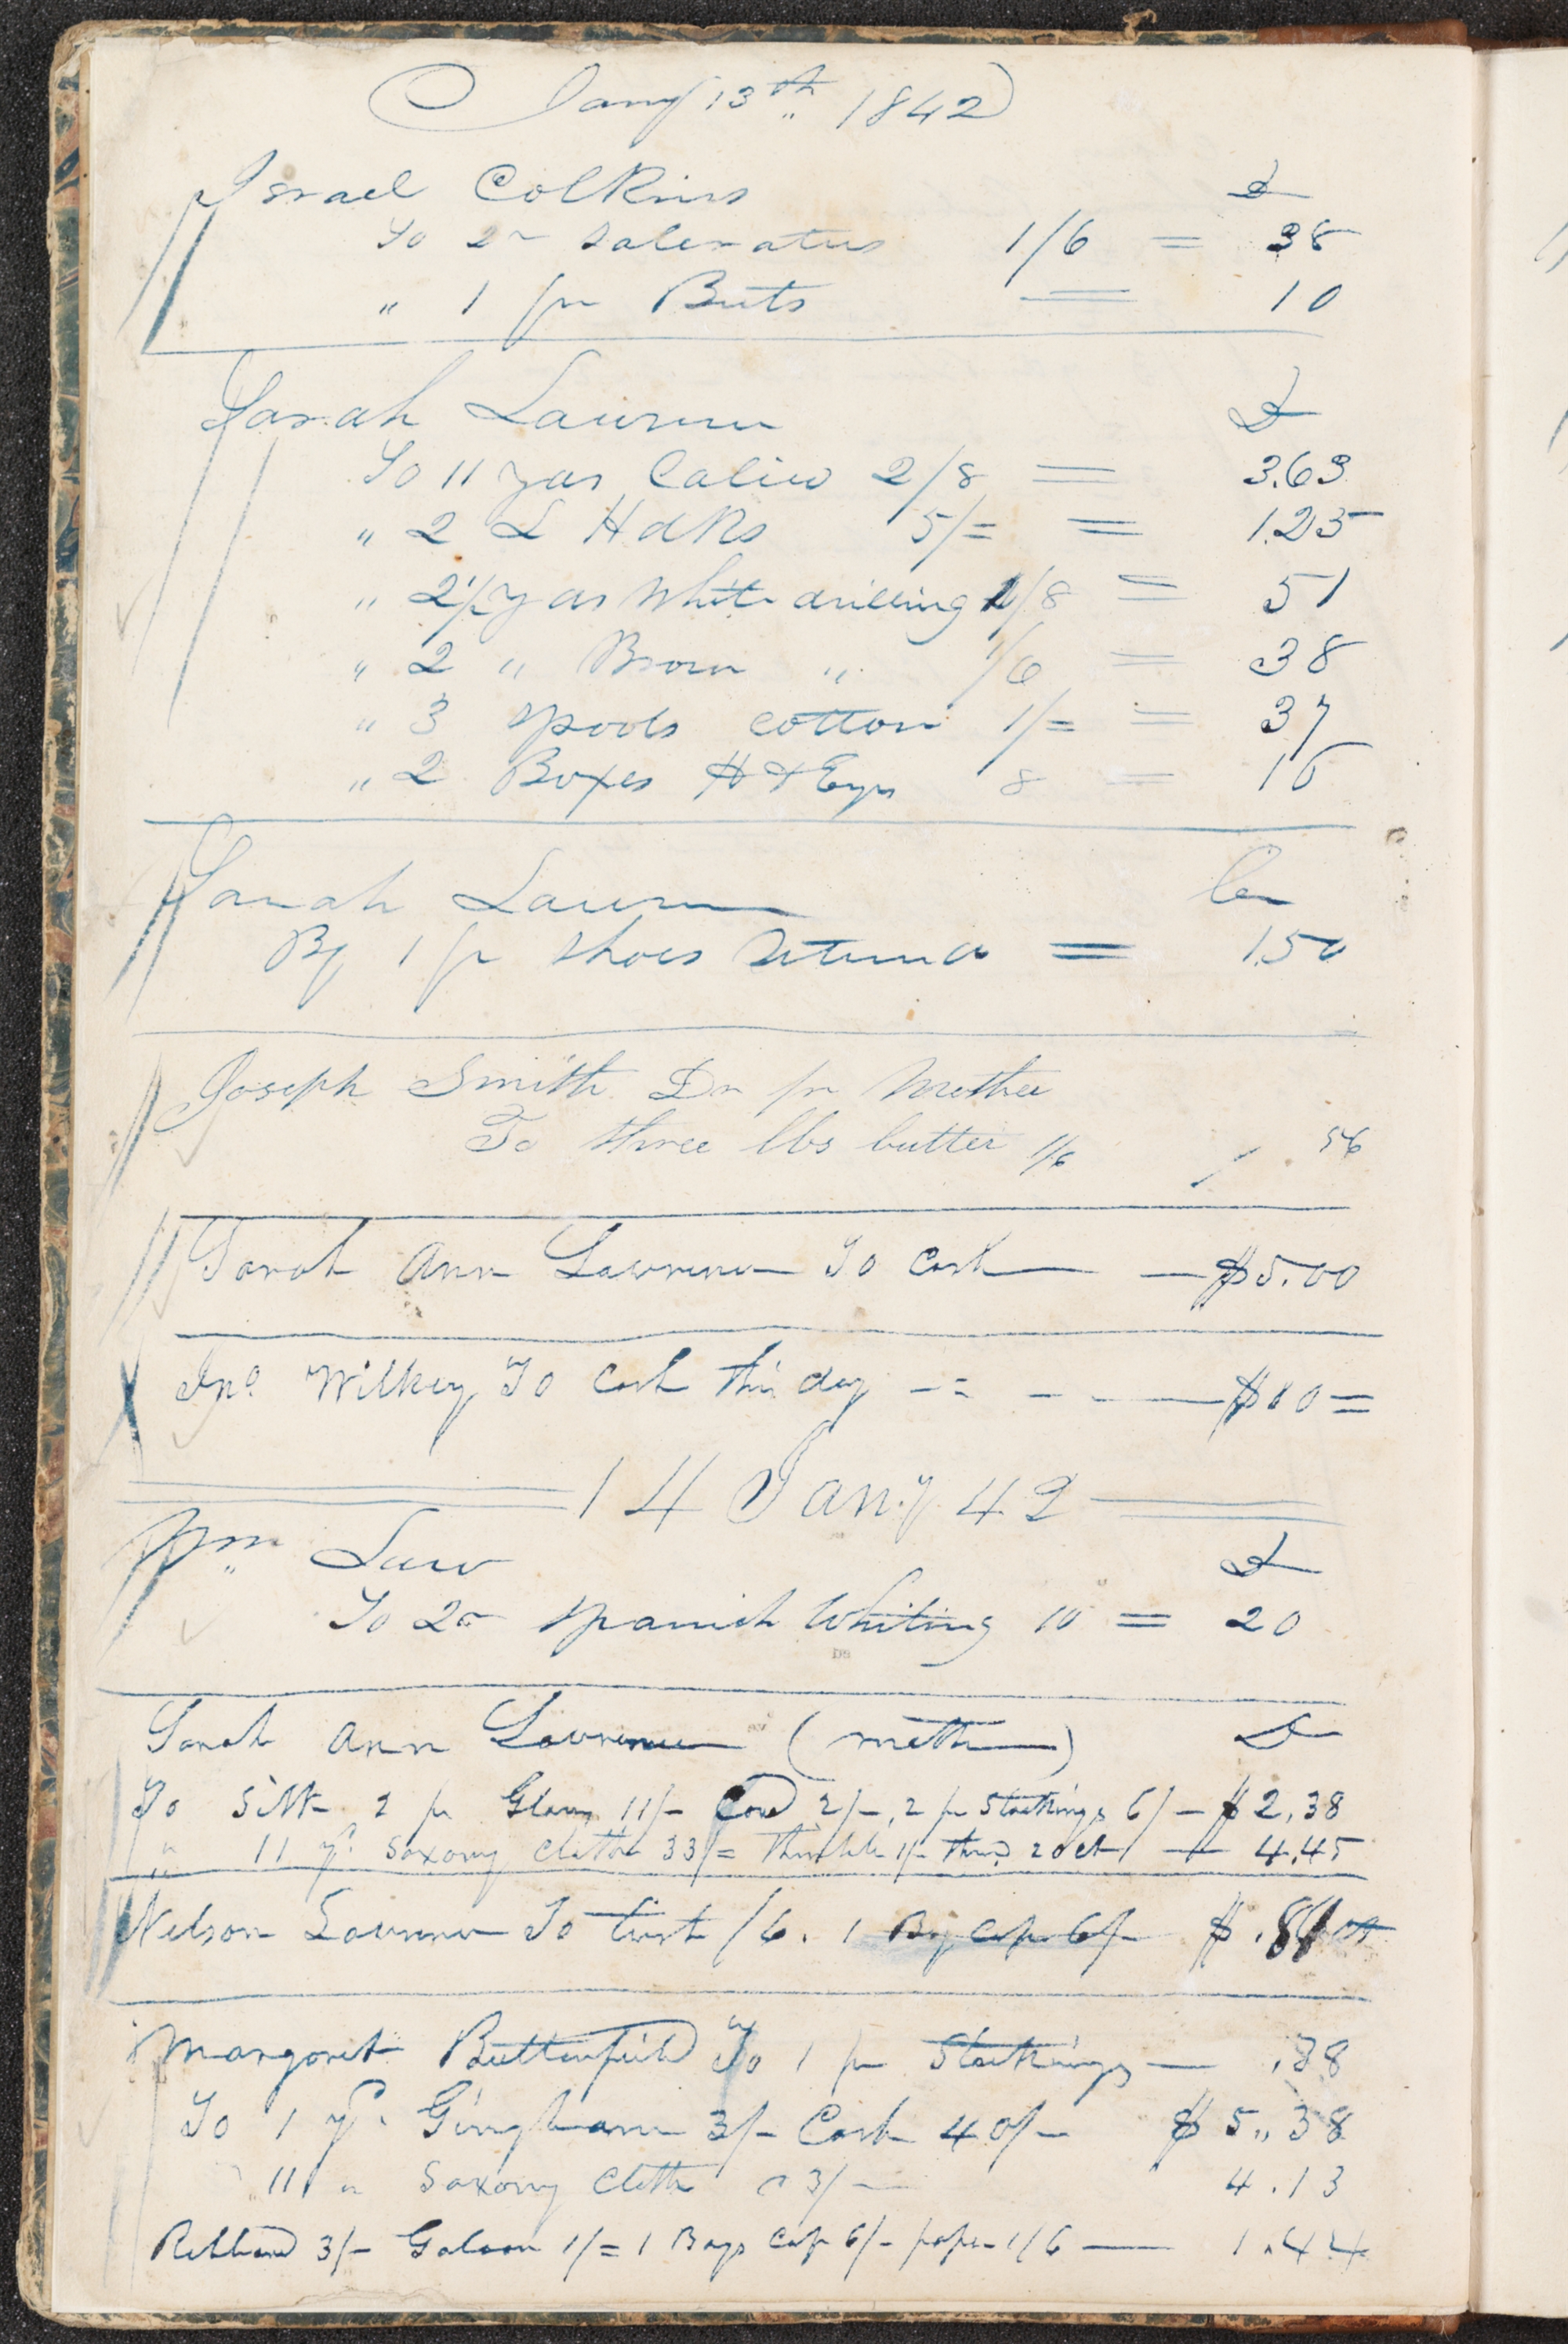 Jany 13th 1842
Israel Colkins D
To 2 Saleratus 1/6 = 38
" 1 pr Buts = 10
Sarah Lawrence D
To 11 yds Calico 2/8 = 3.63
" 2 L Hdkfs 5/= = 1.25
" 2 1/2 yds White drilling 1/8 = 51
" 2 " Brown " 1/6 = 38
" 3 spools cotton 1/= = 37
" 2 Boxes H & Eyes 8 = 16
Sarah Lawrence Cr
By 1 pr shoes returnd = 1.50
Joseph Smith Dr pr Mother
To three lbs butter 1/6 56
Sarah Ann Lawrence To Cash — $5.00
Jno. Wilkey To Cash this day — $10=
14 Jany. 42
Wm Law D
To 2 spanish Whiting 10 = 20
Sarah Ann Lawrence D
To Silk 2 pr Gloves 11/- Cord 2/-, 2 pr Stockings 6/- $2.38
" 11 yds Saxony Cloth 33/= Thimble 1/- thrd 20 ct — 4.45
Nelson Lawrence To twist /6. 1 Boy Cap 6/- $ .81
Margaret Butterfield To 1 pr Stockings — .38
To 1 yd. Gingham 3/- Cash 40/- $ 5,,38
11 " Saxony Cloth 3/- 4.13
Ribband 3/- Galoon 1/= 1 Boys Cap 6/- paper 1/6 — 1.44